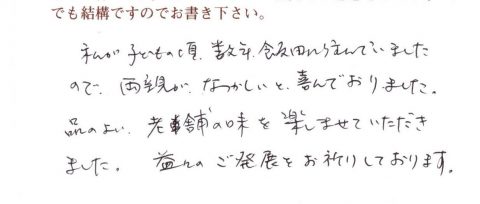 でも結構ですのでお書き下さい。
私が子どもの頃、数年、飯田に住んでいました
ので、両親が、なつかしいと、喜んでおりました。
品のよい、老舗の味を楽しませていただき
ました。 益々のご発展をお祈りしております。